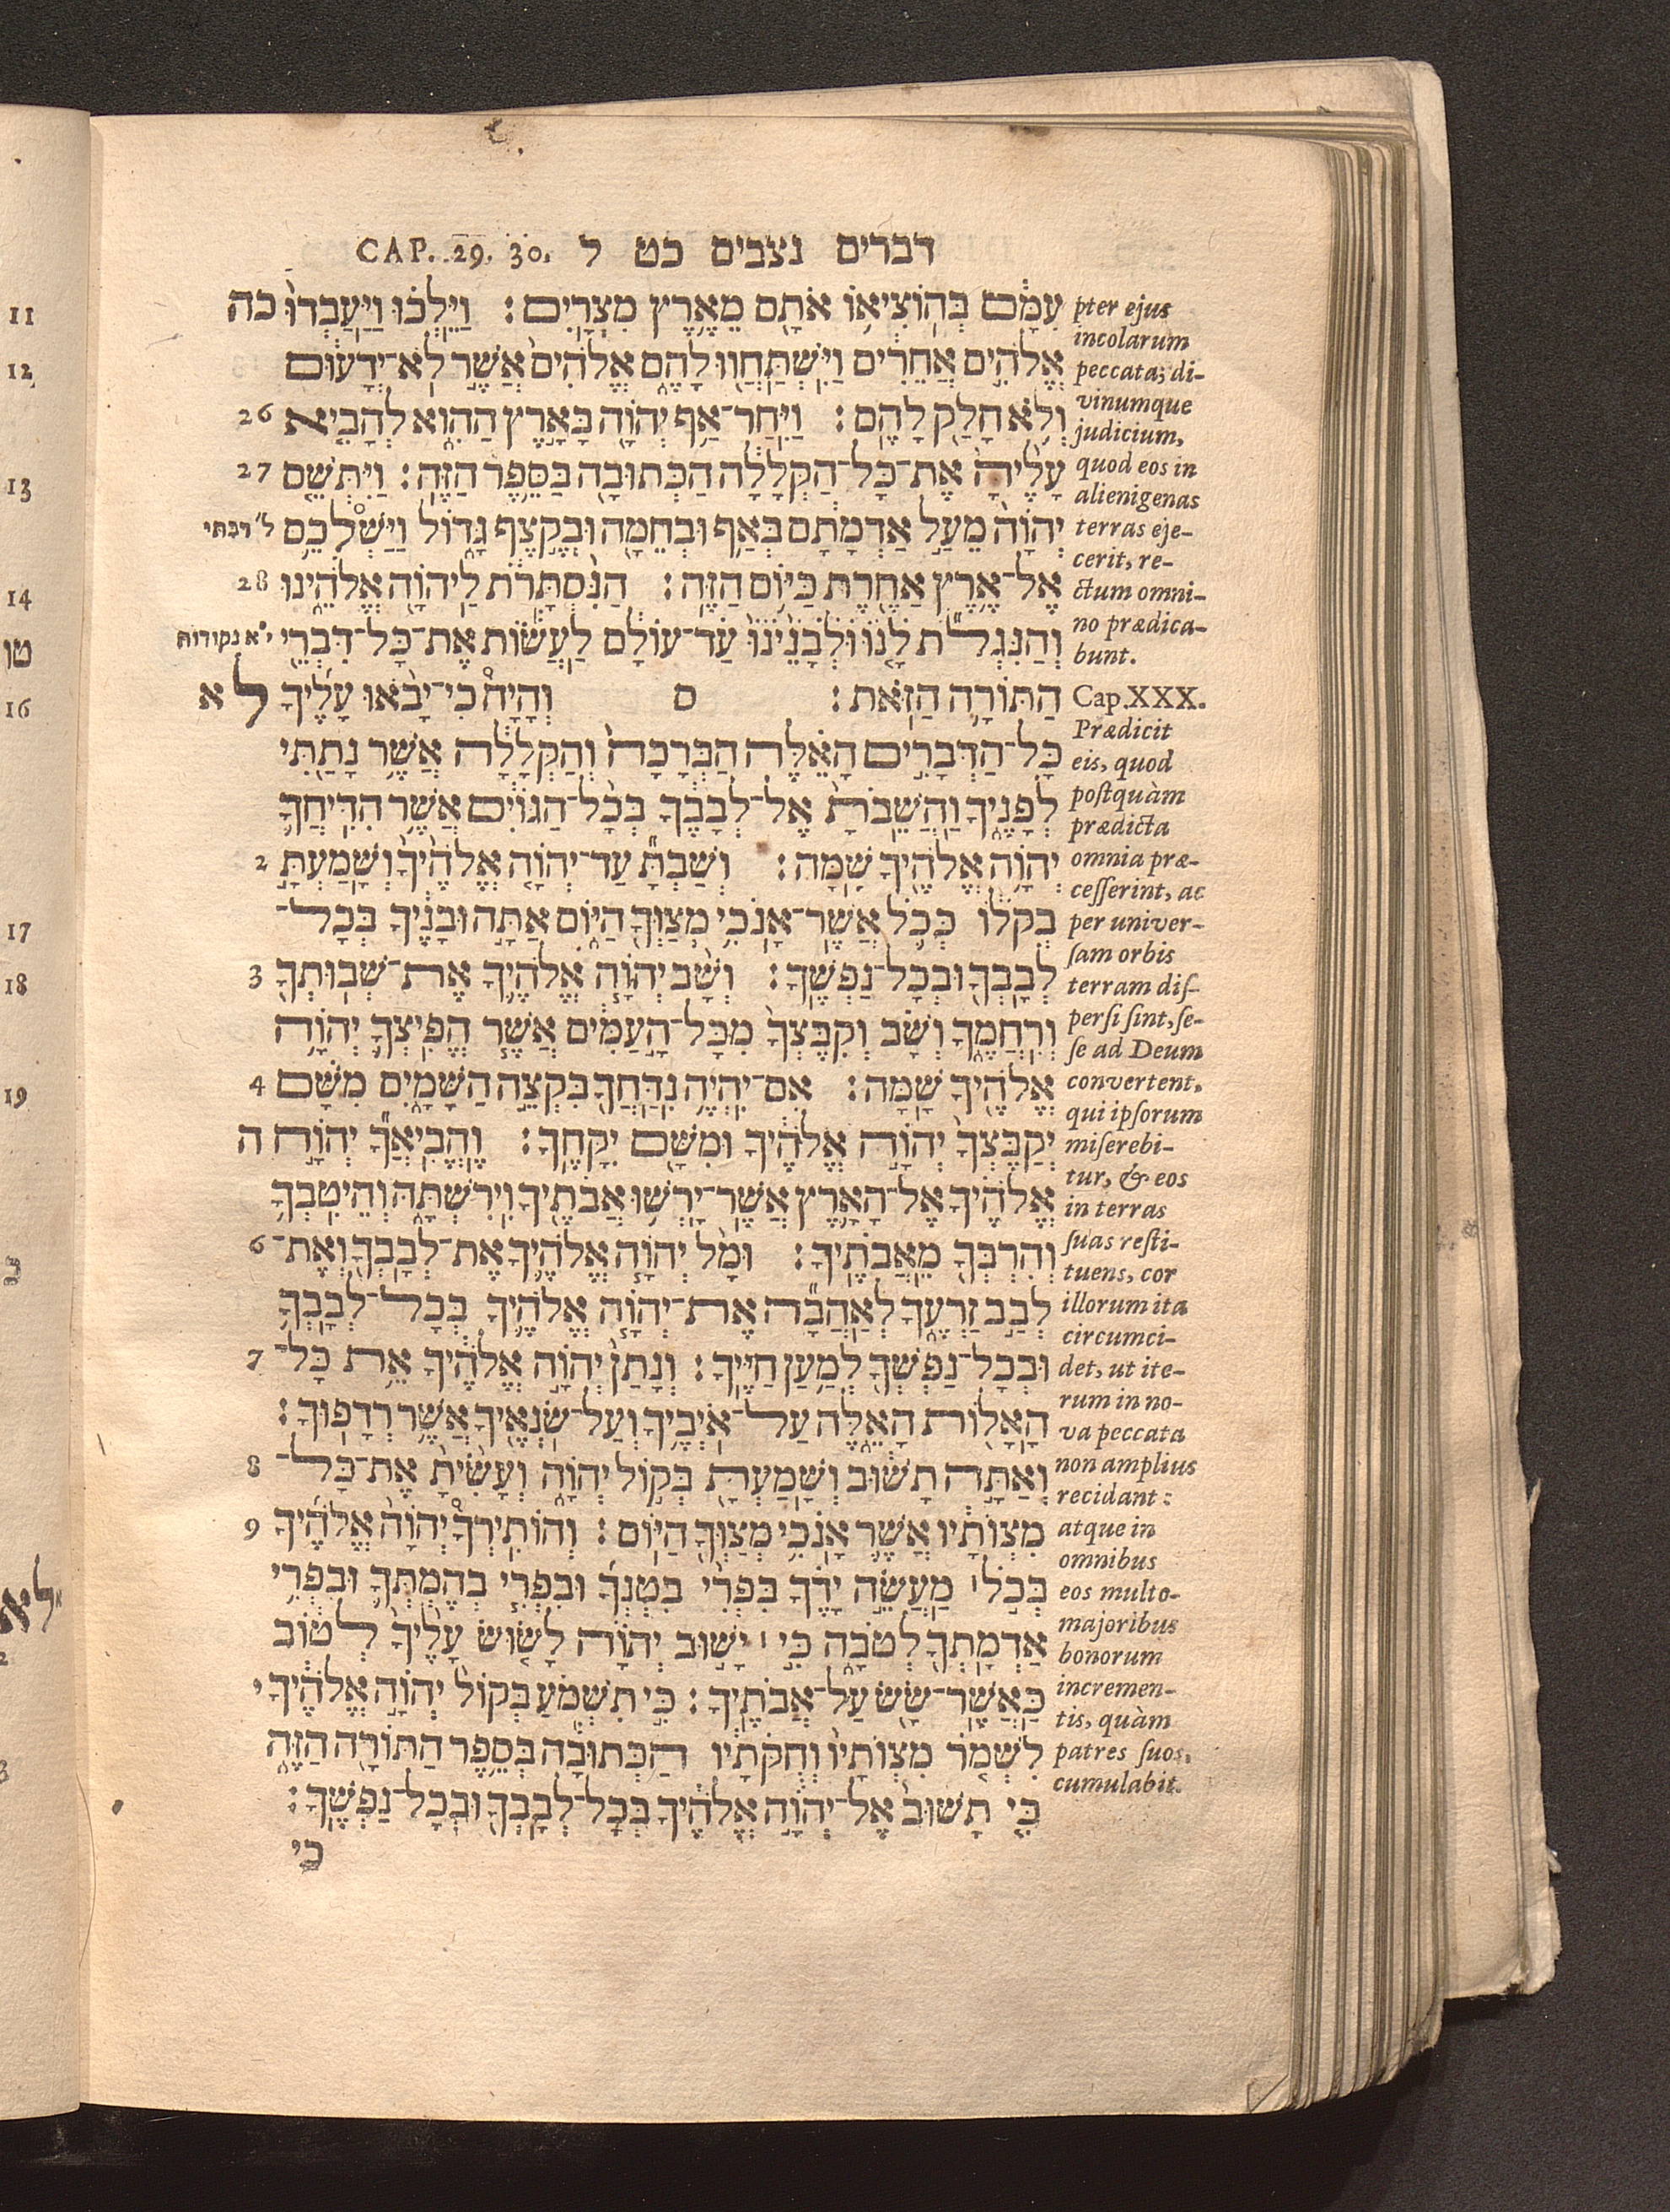 דברים נצבים כט ל CAP. 29. 30.
עִמָּם בְּהוֹצִיאוֹ אֹתָם מֵאֶרֶץ מִצְרָיִם׃ וַיֵּלְכוּ וַיַּעַבְדוּ כה
אֱלֹהִים אֲחֵרִים וַיִּשְׁתַּחֲווּ לָהֶם אֱלֹהִים אֲשֶׁר לֹא־יְדָעוּם
וְלֹא חָלַק לָהֶם׃ וַיִּחַר־אַף יְהוָֹה בָּאָרֶץ הַהִוא לְהָבִיא 26
עָלֶיהָ אֶת־כָּל־הַקְּלָלָה הַכְּתוּבָה בַּסֵּפֶר הַזֶּה׃ וַיִּתְּשֵׁם 27
יְהוָֹה מֵעַל אַדְמָתָם בְּאַף וּבְחֵמָה וּבְקֶצֶף גָּדוֹל וַיַּשְׁלִכֵם ל׳ רבתי
אֶל־אֶרֶץ אַחֶרֶת כַּיּוֹם הַזֶּה׃ הַנִּסְתָּרֹת לַיהוָֹה אֱלֹהֵינוּ 28
וְהַנִּגְלֹת לָנוּ וּלְבָנֵינוּ עַד־עוֹלָם לַעֲשׂוֹת אֶת־כָּל־דִּבְרֵי י״א נקודות
הַתּוֹרָה הַזֹּאת׃ ס וְהָיָה כִי־יָבֹאוּ עָלֶיךָ ל א
כָּל־הַדְּבָרִים הָאֵלֶּה הַבְּרָכָה וְהַקְּלָלָה אֲשֶׁר נָתַתִּי
לְפָנֶיךָ וַהֲשֵׁבֹתָ אֶל־לְבָבֶךָ בְּכָל־הַגּוֹיִם אֲשֶׁר הִדִּיחֲךָ
יְהוָֹה אֱלֹהֶיךָ שָׁמָּה׃ וְשַׁבְתָּ עַד־יְהוָֹה אֱלֹהֶיךָ וְשָׁמַעְתָּ 2
בְקֹלוֹ כְּכֹל אֲשֶׁר־אָנֹכִי מְצַוְּךָ הַיּוֹם אַתָּה וּבָנֶיךָ בְּכָל־
לְבָבְךָ וּבְכָל־נַפְשֶׁךָ׃ וְשָׁב יְהוָֹה אֱלֹהֶיךָ אֶת־שְׁבוּתְךָ 3
וְרִחֲמֶךָ וְשָׁב וְקִבֶּצְךָ מִכָּל־הָעַמִּים אֲשֶׁר הֱפִיצְךָ יְהוָֹה
אֱלֹהֶיךָ שָׁמָּה׃ אִם־יִהְיֶה נִדַּחֲךָ בִּקְצֵה הַשָּׁמָיִם מִשָּׁם 4
יְקַבֶּצְךָ יְהוָֹה אֱלֹהֶיךָ וּמִשָּׁם יִקָּחֶךָ׃ וֶהֱבִיאֲךָ יְהוָֹה ה
אֱלֹהֶיךָ אֶל־הָאָרֶץ אֲשֶׁר־יָרְשׁוּ אֲבֹתֶיךָ וִירִשְׁתָּהּ וְהֵיטִבְךָ
וְהִרְבְּךָ מֵאֲבֹתֶיךָ׃ וּמָל יְהוָֹה אֱלֹהֶיךָ אֶת־לְבָבְךָ וְאֶת־ 6
לְבַב זַרְעֶךָ לְאַהֲבָה אֶת־יְהוָֹה אֱלֹהֶיךָ בְּכָל־לְבָבְךָ
וּבְכָל־נַפְשְׁךָ לְמַעַן חַיֶּיךָ׃ וְנָתַן יְהוָֹה אֱלֹהֶיךָ אֵת כָּל־ 7
הָאָלוֹת הָאֵלֶּה עַל־אֹיְבֶיךָ וְעַל־שֹׂנְאֶיךָ אֲשֶׁר רְדָפוּךָ׃
וְאַתָּה תָשׁוּב וְשָׁמַעְתָּ בְּקוֹל יְהוָֹה וְעָשִׂיתָ אֶת־כָּל־ 8
מִצְוֹתָיו אֲשֶׁר אָנֹכִי מְצַוְּךָ הַיּוֹם׃ וְהוֹתִירְךָ יְהוָֹה אֱלֹהֶיךָ 9
בְּכֹל ׀ מַעֲשֵׂה יָדֶךָ בִּפְרִי בִטְנְךָ וּבִפְרִי בְהֶמְתְּךָ וּבִפְרִי
אַדְמָתְךָ לְטֹבָה כִּי ׀ יָשׁוּב יְהוָֹה לָשׂוּשׂ עָלֶיךָ לְטוֹב
כַּאֲשֶׁר־שָׂשׂ עַל־אֲבֹתֶיךָ׃ כִּי תִשְׁמַע בְּקוֹל יְהוָֹה אֱלֹהֶיךָ י
לִשְׁמֹר מִצְוֹתָיו וְחֻקֹּתָיו הַכְּתוּבָה בְּסֵפֶר הַתּוֹרָה הַזֶּה
כִּי תָשׁוּב אֶל־יְהוָֹה אֱלֹהֶיךָ בְּכָל־לְבָבְךָ וּבְכָל־נַפְשֶׁךָ׃
כי
pter ejus
incolarum
peccata; di-
vinumque
judicium,
quod eos in
alienigenas
terras eje-
cerit, re-
ctum omni-
no prædica-
bunt.
Cap. XXX.
Prædicit
eis, quod
poſtquàm
prædicta
omnia præ-
ceſſerint, ac
per univer-
ſam orbis
terram diſ-
perſi ſint, ſe-
ſe ad Deum
convertent,
qui ipſorum
miſerebi-
tur, & eos
in terras
ſuas reſti-
tuens, cor
illorum ita
circumci-
det, ut ite-
rum in no-
va peccata
non amplius
recidant:
atque in
omnibus
eos multo-
majoribus
bonorum
incremen-
tis, quàm
patres ſuos,
cumulabit.
11
12
13
14
טו
16
17
18
19
לא